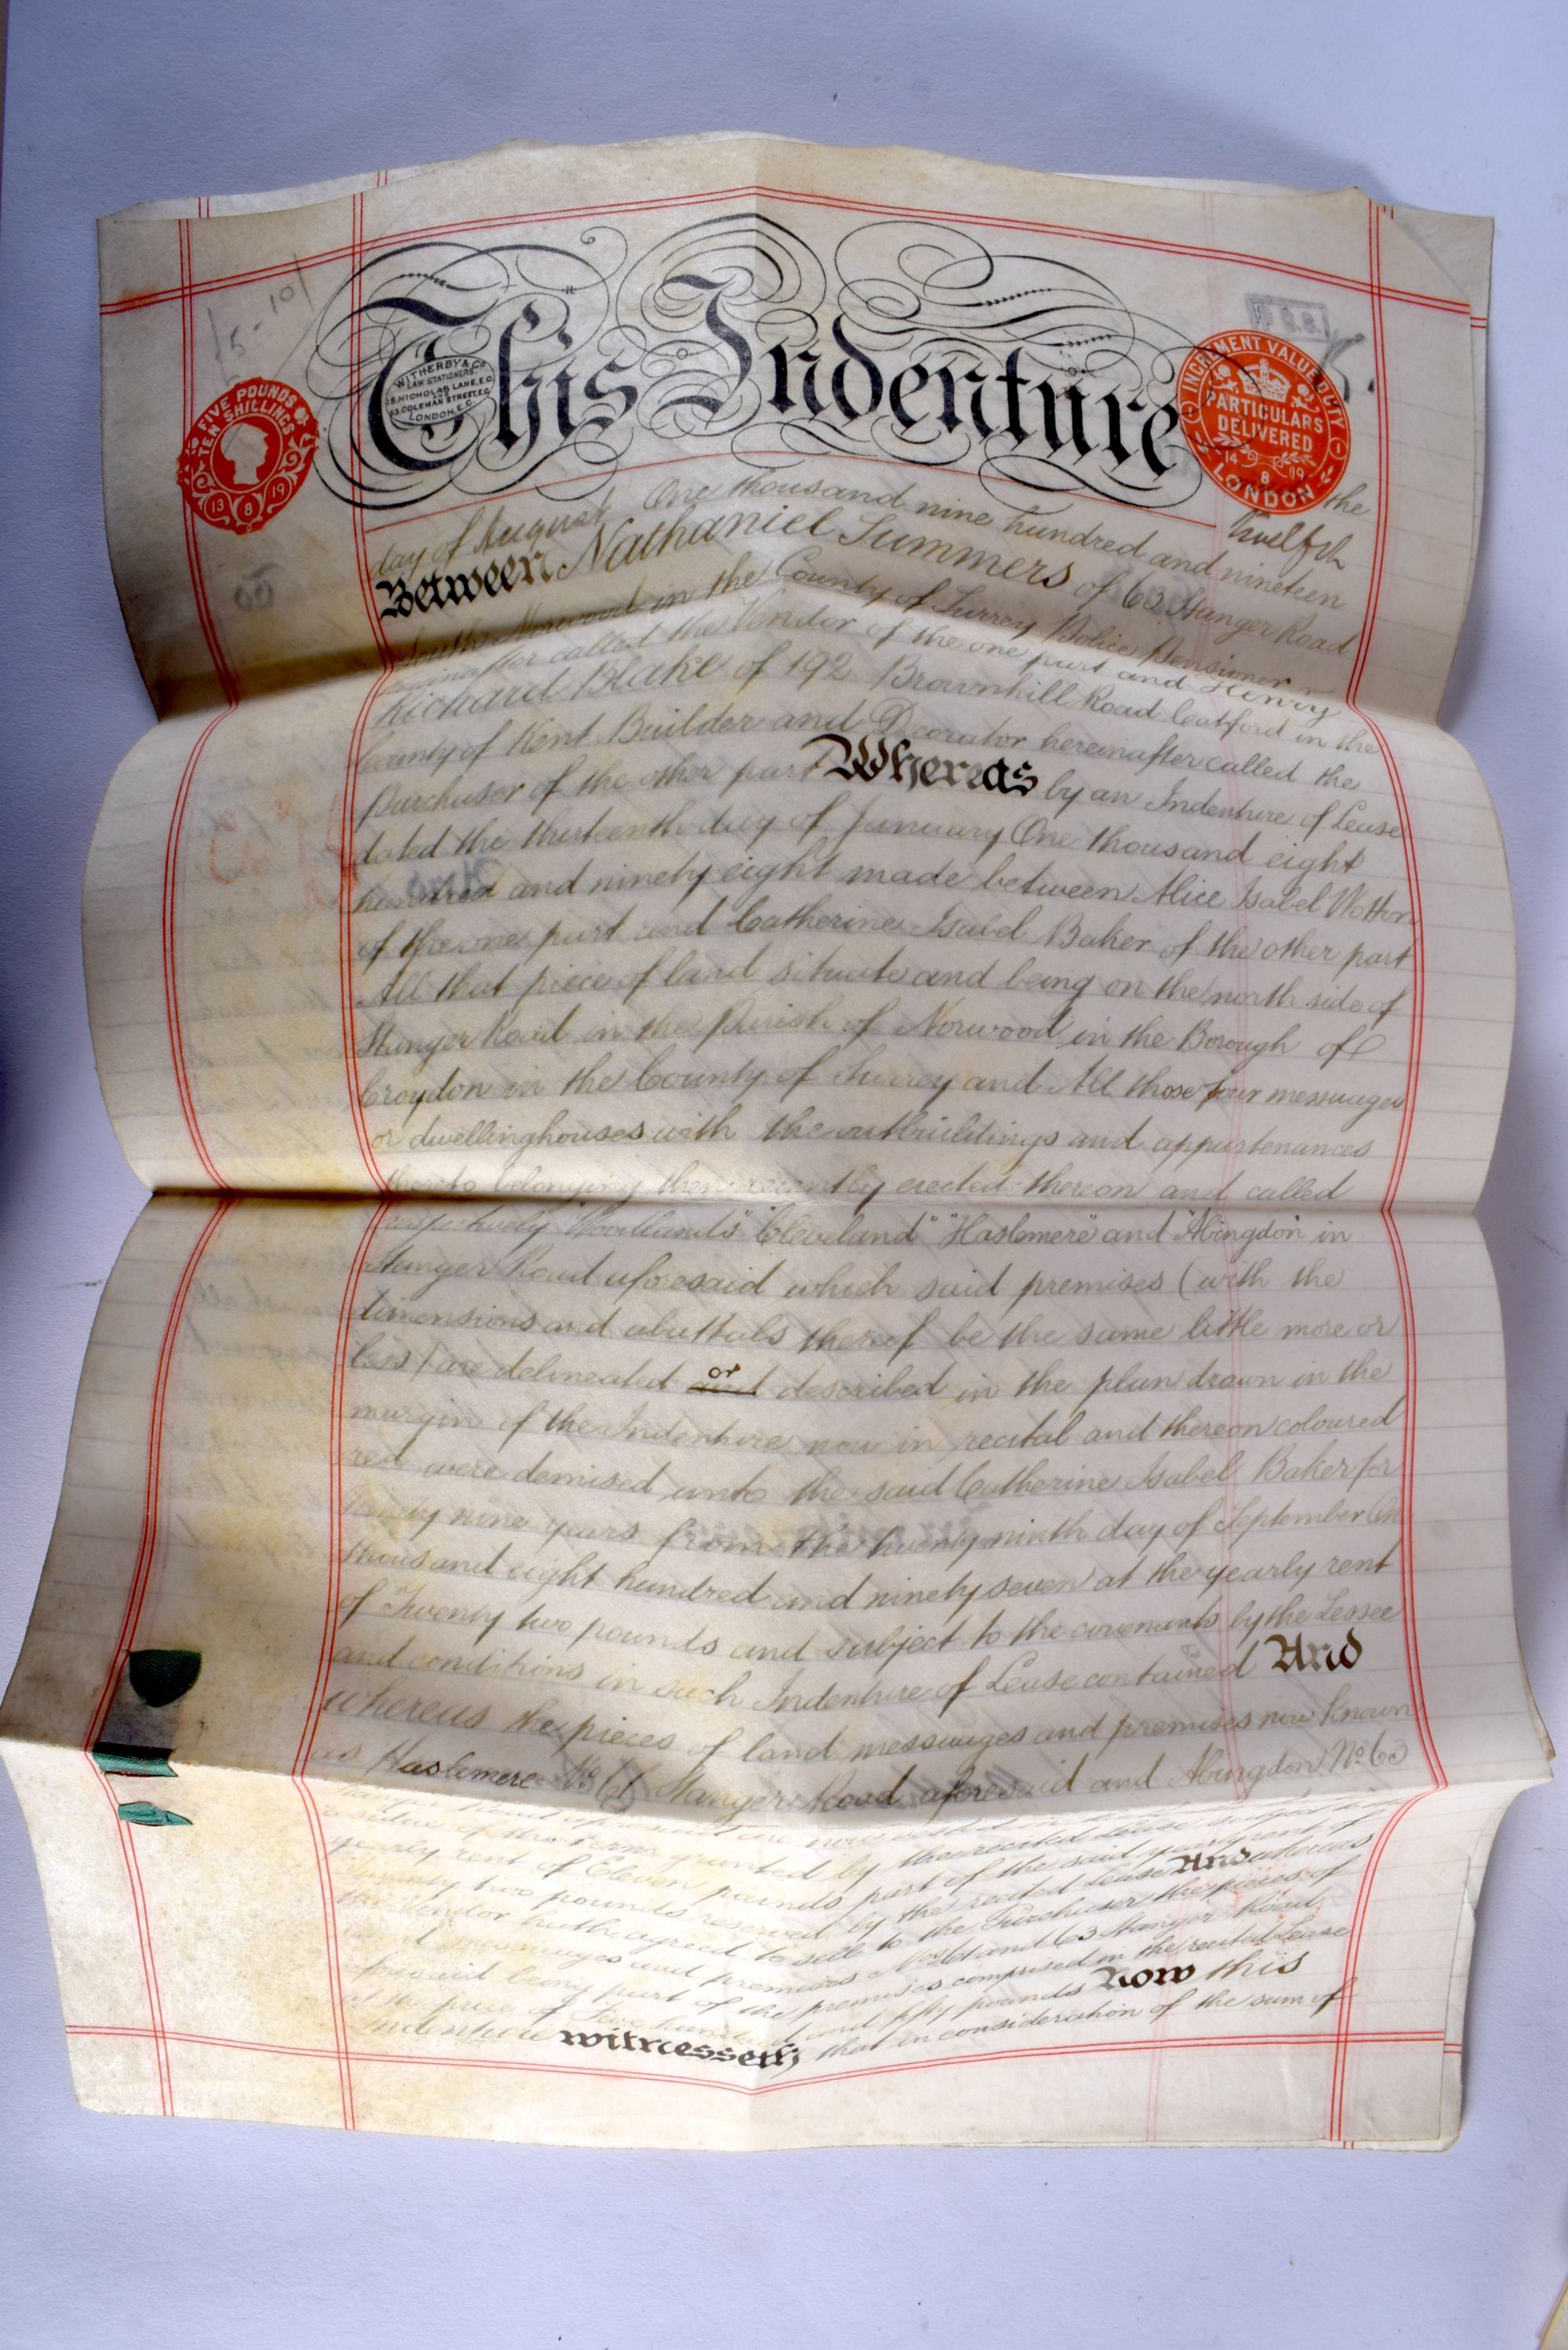 /5-10/
This Indenture
WITHERBY & CO
LAW STATIONERS.
NICHOLAS LANE, E.C.
COLEMAN STREET, E.C.
LONDON, E.C.
FIVE POUNDS
TEN SHILLINGS
13 8 19
INCREMENT VALUE DUTY
PARTICULARS
DELIVERED
14 8 19
LONDON
the twelfth
day of August One thousand nine hundred and nineteen
Between Nathaniel Summers of 63 Stanger Road
South Norwood in the County of Surrey Police Pensioner
hereinafter called the Vendor of the one part and Henry
Richard Blake of 192 Brownhill Road Catford in the
County of Kent Builder and Decorator hereinafter called the
Purchaser of the other part Whereas by an Indenture of Lease
dated the thirteenth day of January One thousand eight
hundred and ninety eight made between Alice Isabel Wotton
of the one part and Catherine Isabel Baker of the other part
All that piece of land situate and being on the north side of
Stanger Road in the Parish of Norwood in the Borough of
Croydon in the County of Surrey and All those four messuages
or dwellinghouses with the outbuildings and appurtenances
thereto belonging then recently erected thereon and called
respectively "Woodlands" "Cleveland" "Haslemere" and "Abingdon" in
Stanger Road aforesaid which said premises (with the
dimensions and abuttals thereof be the same little more or
less) are delineated or and described in the plan drawn in the
margin of the Indenture now in recital and thereon coloured
red were demised unto the said Catherine Isabel Baker for
ninety nine years from the twenty ninth day of September One
thousand eight hundred and ninety seven at the yearly rent
of Twenty two pounds and subject to the covenants by the Lessee
and conditions in such Indenture of Lease contained And
whereas the pieces of land messuages and premises now known
as Haslemere No 61 Stanger Road aforesaid and Abingdon No 63
Stanger Road aforesaid are now vested in
residue of the term granted by the recited Lease subject
yearly rent of Eleven pounds part of the said yearly rent of
Twenty two pounds reserved by the recited Lease And whereas
the Vendor hath agreed to sell to the Purchaser the pieces of
land messuages and premises Nos 61 and 63 Stanger Road
aforesaid being part of the premises comprised in the recited Lease
at the price of Five hundred and fifty pounds Now this
Indenture witnesseth that in consideration of the sum of